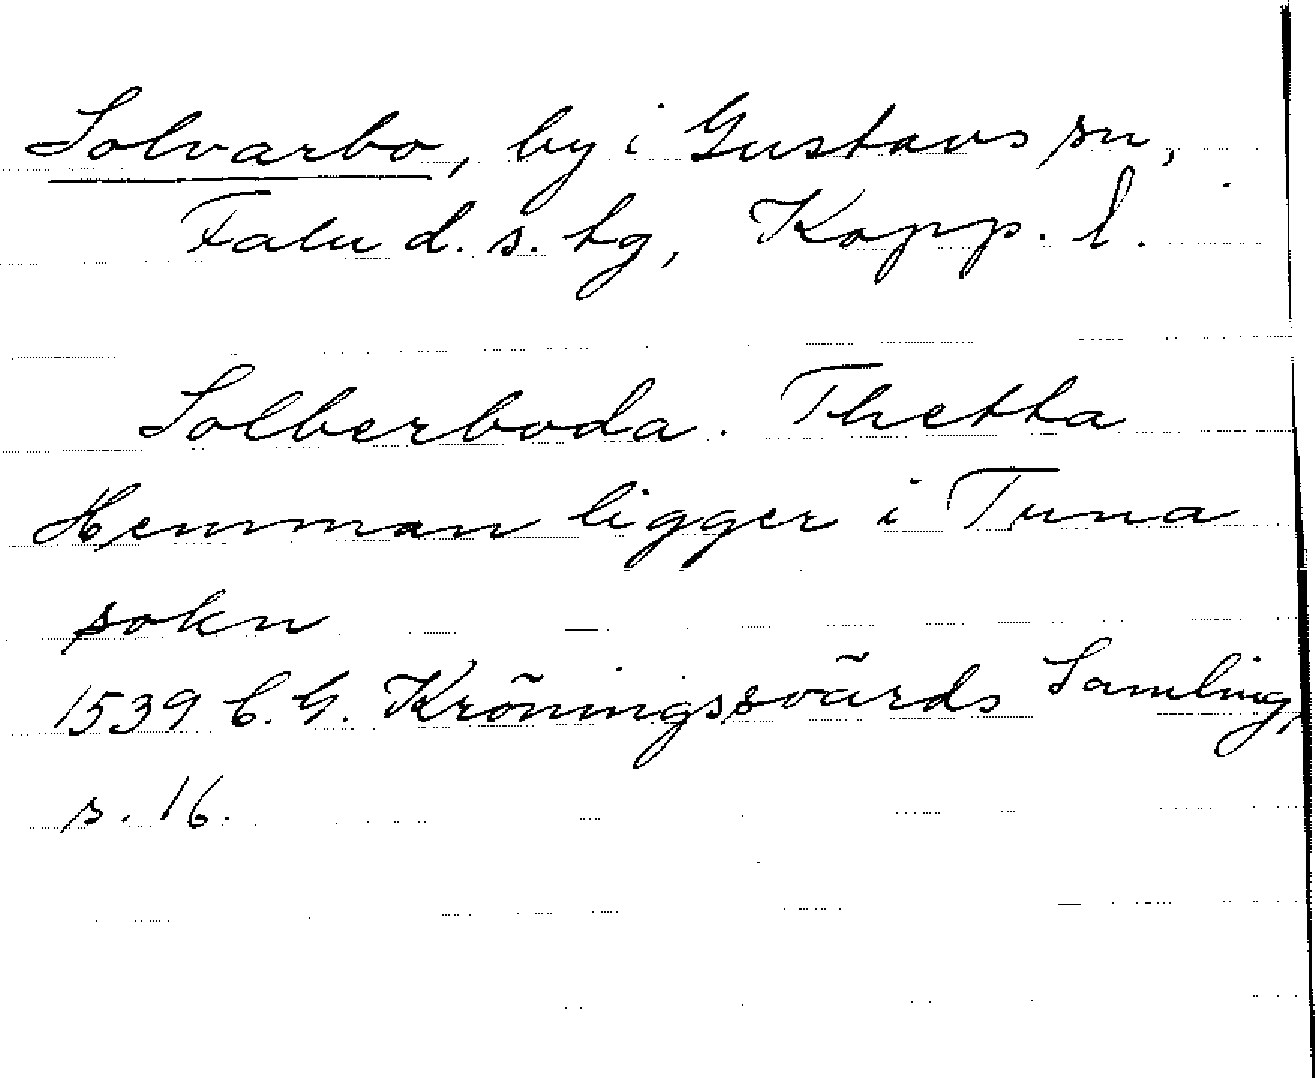 Solvarbo, by i Gustavs sn,
Falu d. s. tg, Kopp. l.
Solberboda. Thetta
Hemman ligger i Tuna
sokn
1539 C. G. Kröningssvärds Samling,
s. 16.